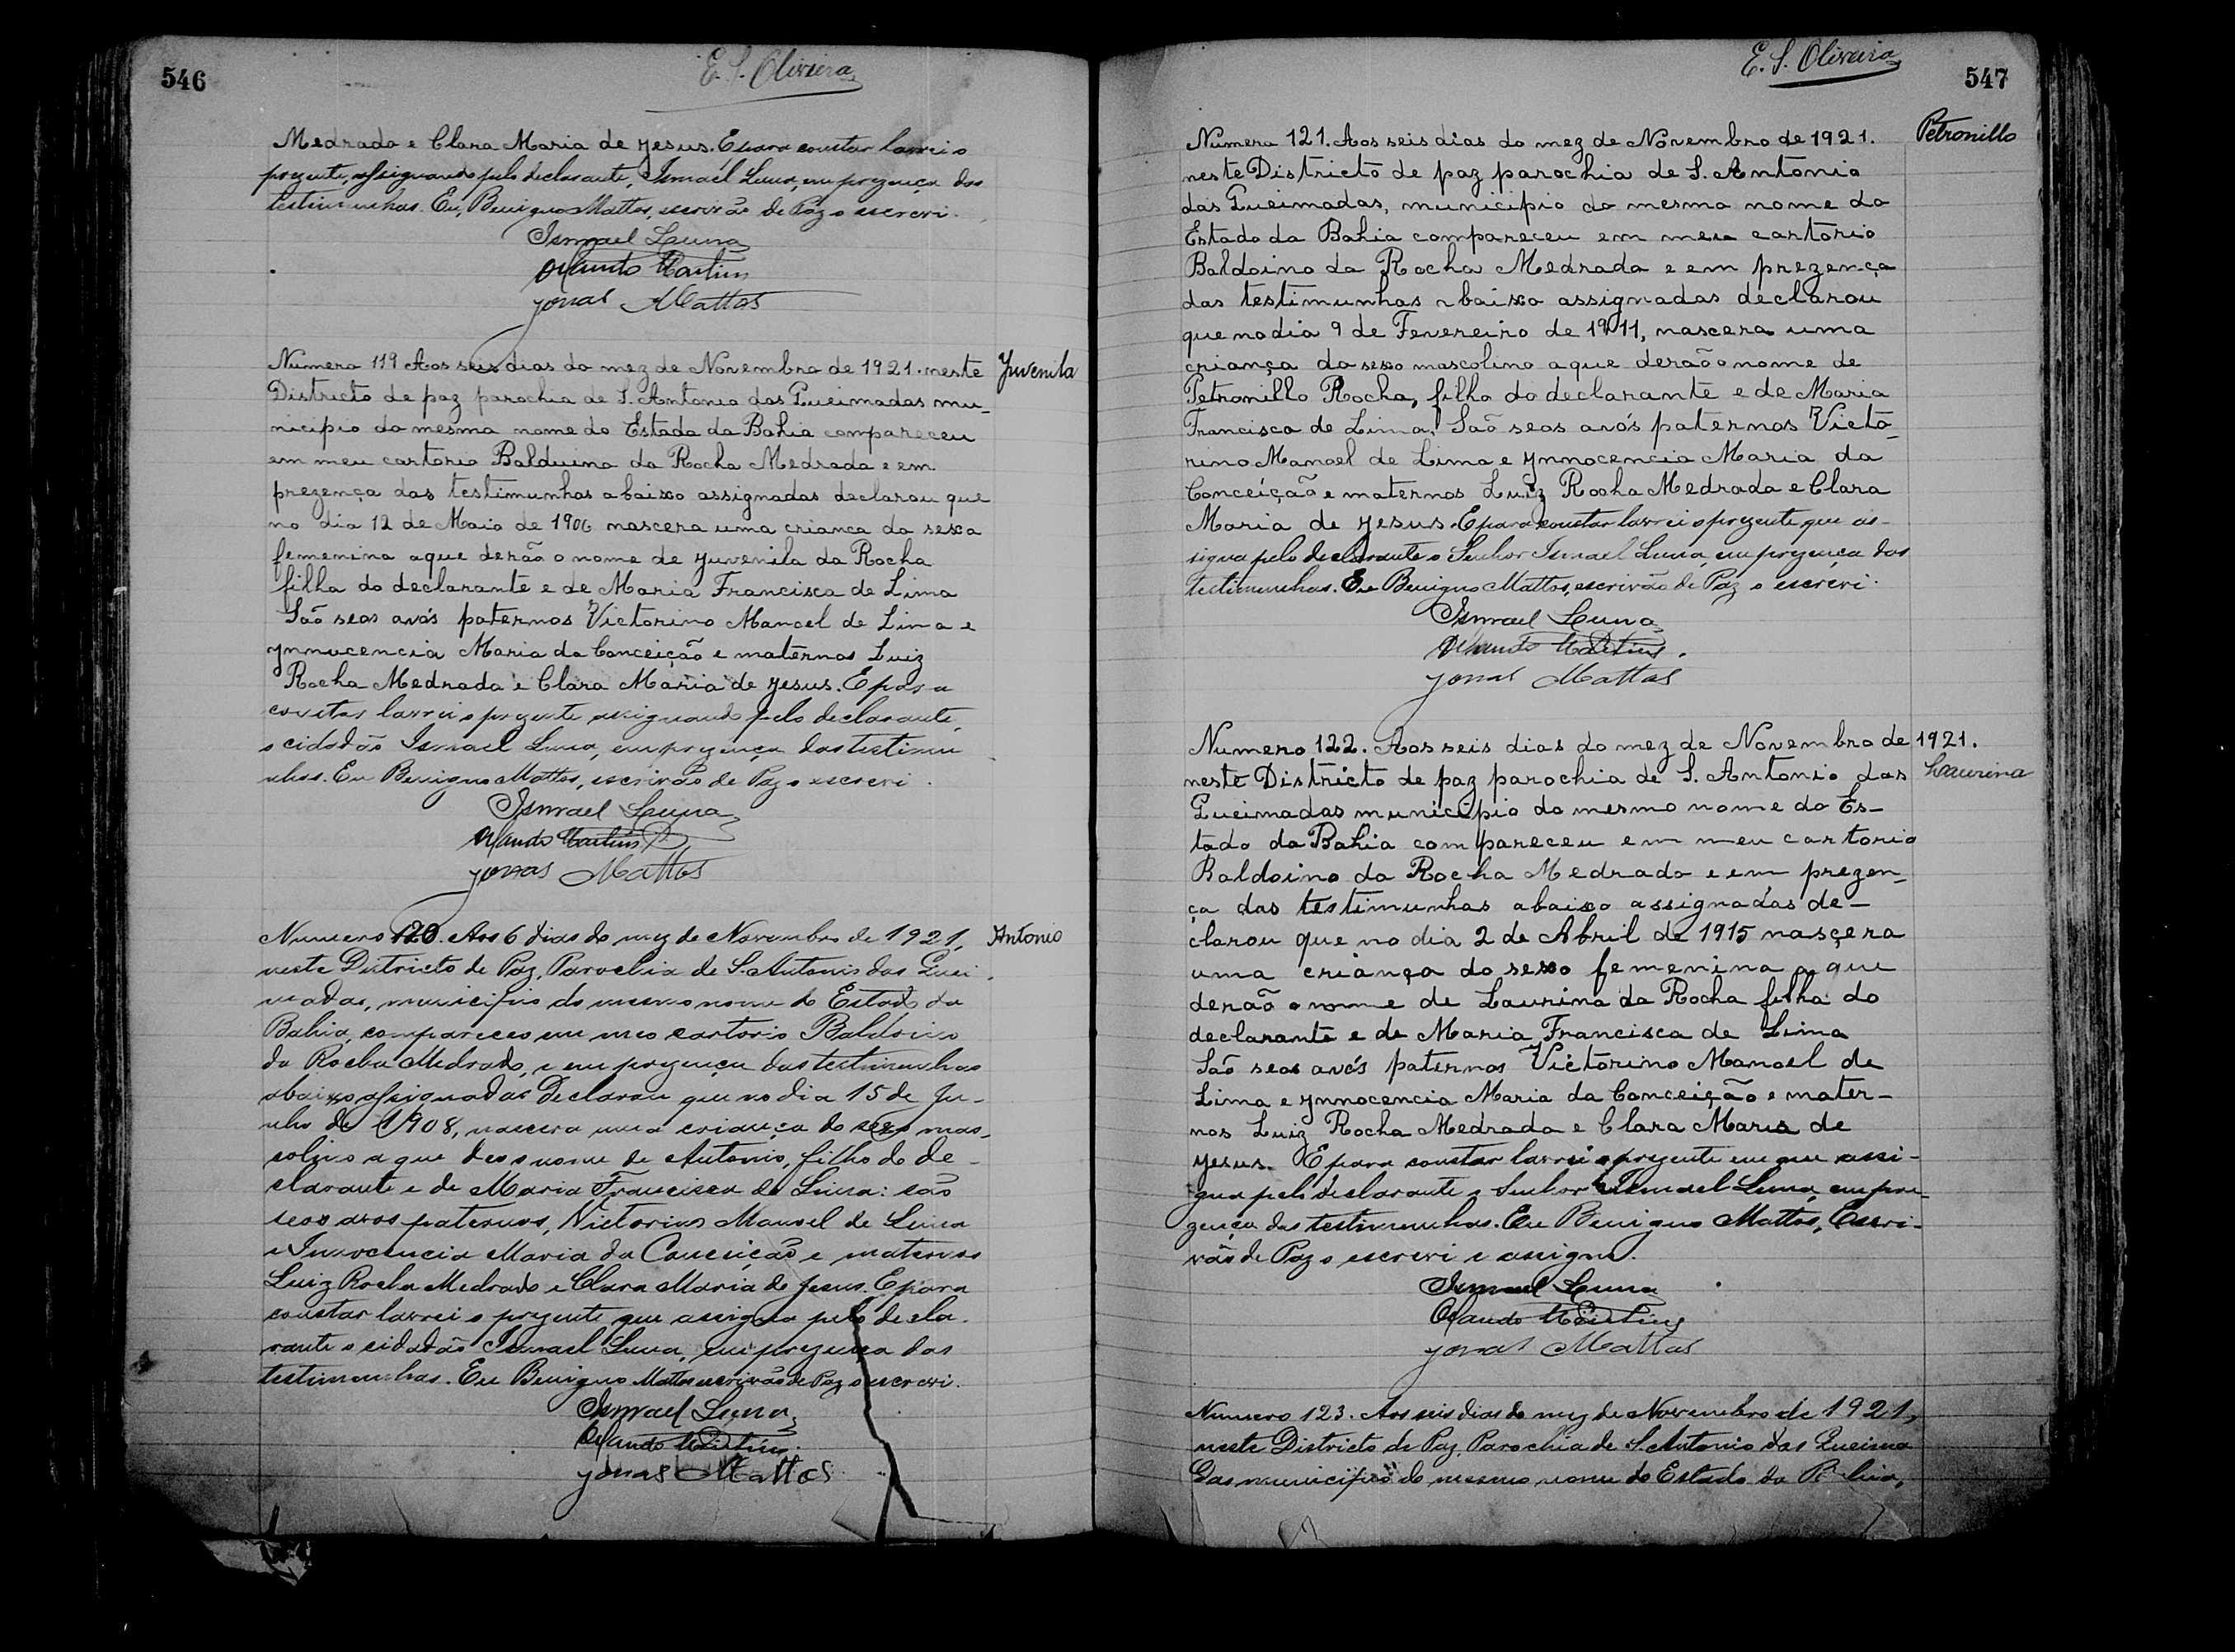 546
E. S. Oliveira
Medrado e Clara Maria de Jesus. E para constar lavrei o
prezente, assignando pelo declarante, Ismael Luna, em prezença das
testimunhas. Eu, Benigno Mattos, escrivão de Paz o escrevi.
Ismael Luna
Orlando Martins
Jonas Mattos
Numero 119 Aos seis dias do mez de Novembro de 1921. neste
Juvenila
Districto de paz parochia de S. Antonio das Queimadas mu-
nicipio do mesmo nome do Estado da Bahia compareceu
em meu cartorio Balduino da Rocha Medrado e em
prezença das testimunhas abaixo assignadas declarou que
no dia 12 de Maio de 1906 nascera uma criança do sexo
femenino aque derão o nome de Juvenila da Rocha
filha do declarante e de Maria Francisca de Lima
São seos avós paternos Victorino Manoel de Lima e
Ynnucencia Maria da Conceição e maternos Luiz
Rocha Medrado e Clara Maria de Jesus. E para
constar lavrei o prezente assignando pelo declarante,
o cidadão Ismael Luna, em prezença das testimu
nhas. Eu Benigno Mattos, escrivão de Paz o escrevi.
Ismael Luna
Orlando Martins
Jonas Mattos
Numero 120. Aos 6 dias do mez de Novembro de 1921,
Antonio
neste Districto de Paz, Parochia de S. Antonio das Quei-
madas, municipio do mesmo nome do Estado da
Bahia, compareceo em meo cartorio Baldoino
da Rocha Medrado, e em prezença das testimunhas
abaixo assignadas Declarou que no dia 15 de Ju-
nho de 1908, nascera uma criança do sexo mas-
colino a que deo o nome de Antonio, filho do de-
clarante e de Maria Francisca de Lima: são
seos avos paternos, Victorino Manoel de Lima
e Innocencia Maria da Conceição e maternos
Luiz Rocha Medrado e Clara Maria de Jesus. E para
constar lavrei o prezente que assigna pelo decla-
rante o cidadão Ismael Luna, em prezença das
testimunhas. Eu Benigno Mattos escrivão de Paz o escrevi.
Ismael Luna
Orlando Martins
Jonas Mattos
E. S. Oliveira
547
Numero 121. Aos seis dias do mez de Novembro de 1921.
Petronillo
neste Districto de paz parochia de S. Antonio
das Queimadas, municipio do mesmo nome do
Estado da Bahia compareceu em meu cartorio
Baldoino da Rocha Medrado e em prezença
das testimunhas abaixo assignadas declarou
que no dia 9 de Fevereiro de 1911, nascera uma
criança do sexo mascolino aque derão o nome de
Petronillo Rocha, filho do declarante e de Maria
Francisca de Lima. São seos avós paternos Victo-
rino Manoel de Lima e Ynnocencia Maria da
Conceição e maternos Luiz Rocha Medrado e Clara
Maria de Jesus. E para constar lavrei o prezente que as-
signa pelo declarante o Senhor Ismael Luna, em prezença das
testimunhas. Eu Benigno Mattos, escrivão de Paz o escrevi.
Ismael Luna
Orlando Martins.
Jonas Mattos
Numero 122. Aos seis dias do mez de Novembro de 1921.
neste Districto de paz parochia de S. Antonio das
Laurina
Queimadas municipio do mesmo nome do Es-
tado da Bahia compareceu em meu cartorio
Baldoino da Rocha Medrado e em prezen-
ça das testimunhas abaixo assignadas de-
clarou que no dia 2 de Abril de 1915 nascera
uma criança do sexo femenino a que
derão o nome de Laurina da Rocha filha do
declarante e de Maria Francisca de Lima
São seos avós paternos Victorino Manoel de
Lima e Ynnocencia Maria da Conceição e mater-
nos Luiz Rocha Medrado e Clara Maria de
Jesus. E para constar lavrei o prezente em que assi-
gna pelo declarante o Senhor Ismael Luna, em pre-
zença das testimunhas. Eu Benigno Mattos, Escri-
vão de Paz o escrevi e assigno.
Ismael Luna
Orlando Martins
Jonas Mattos
Numero 123. Aos seis dias do mez de Novembro de 1921,
neste Districto de Paz, Parochia de S. Antonio das Queima
das municipio do mesmo nome do Estado da Bahia,